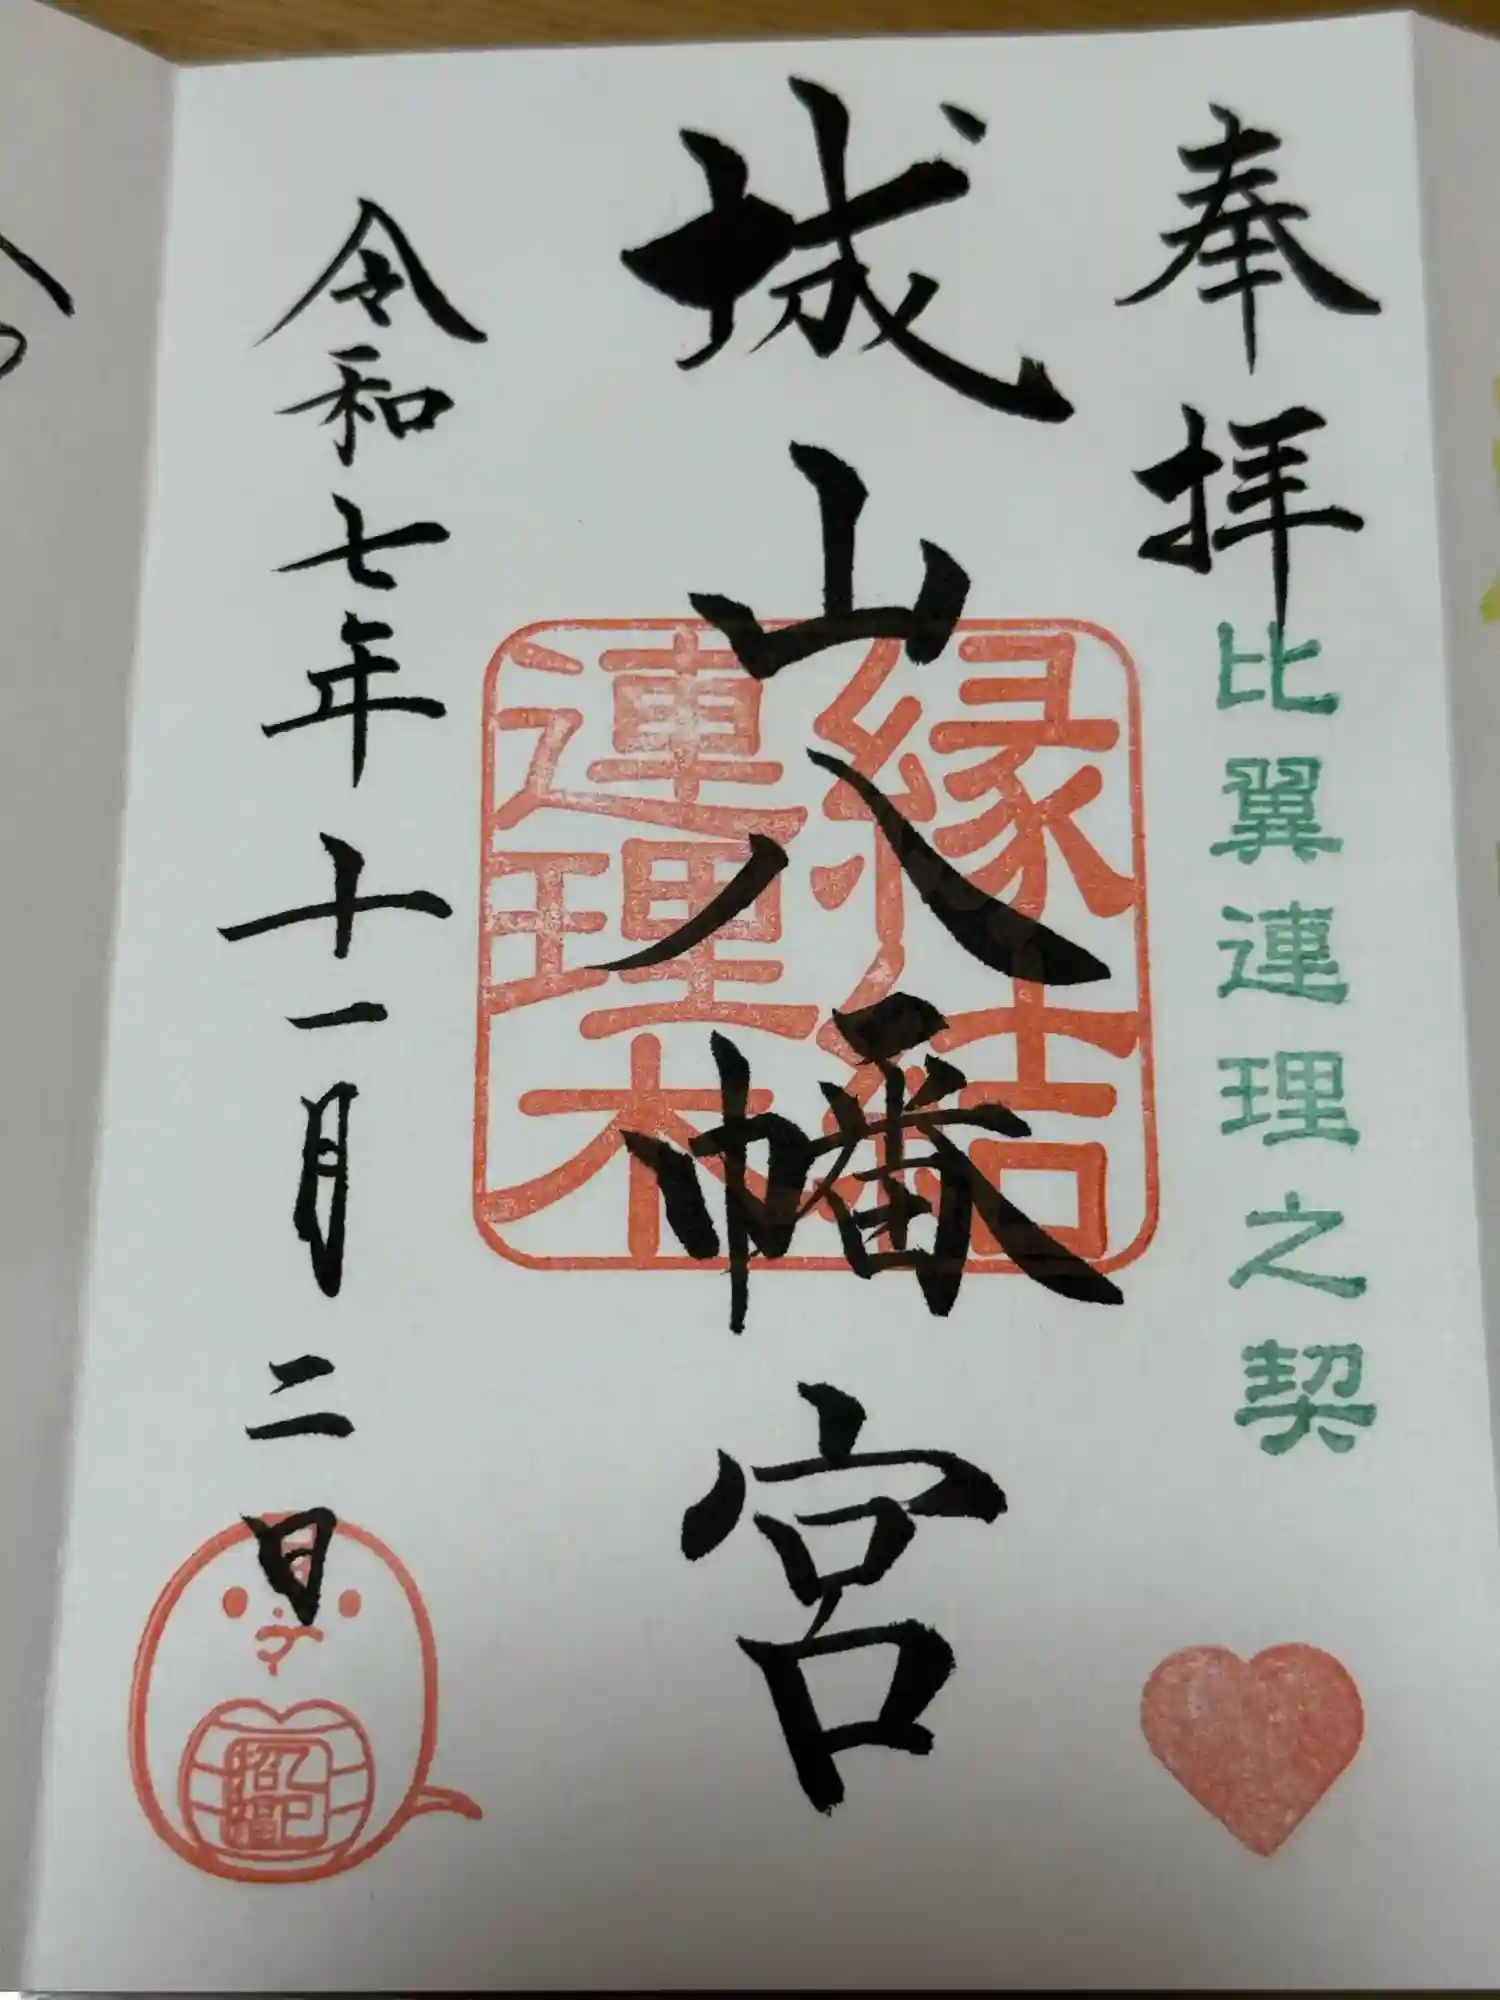 奉拝
比翼連理之契
城山八幡宮
縁結
連理木
令和七年十一月二日
乙巳
招福